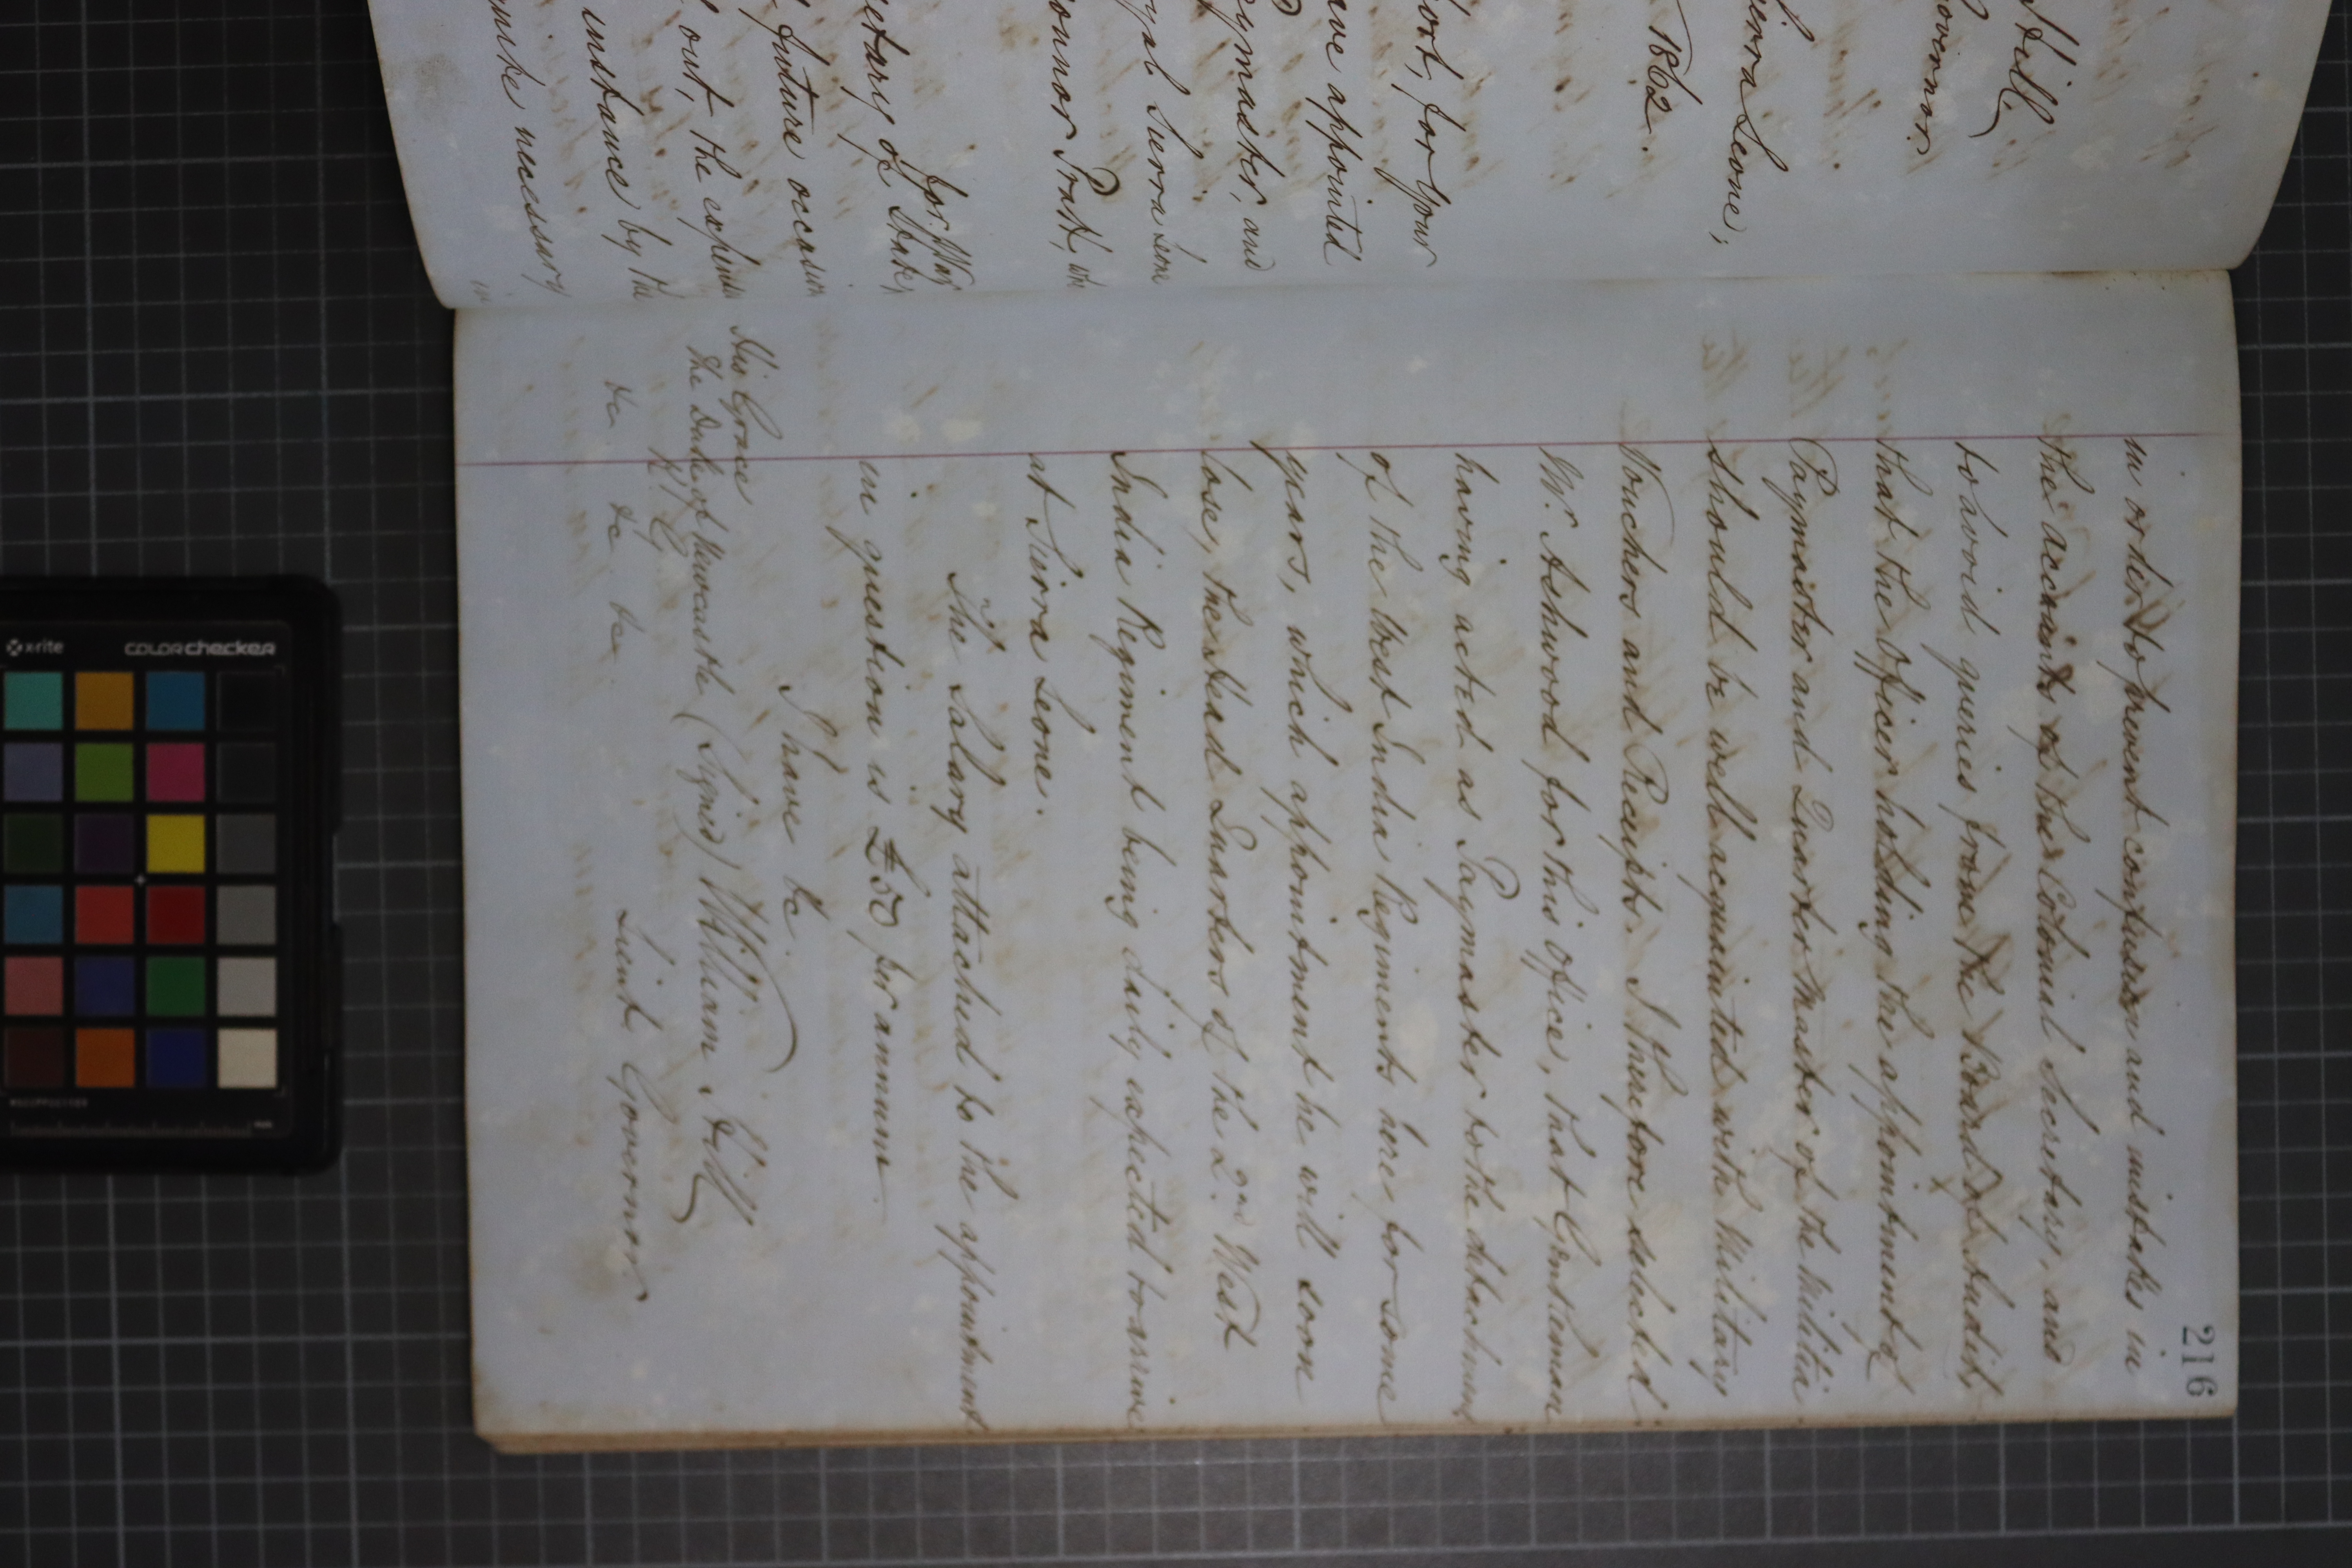 Hill,
Governor
Sierra Leone,
1862.
for Your
have appointed
Paymaster, and
Royal Sierra Leone
Connor Pratt,
for War
Secretary of State,
future occasion
out, the
instance by the
make necessary
216
in order to prevent confusion and mistakes in
the accounts of the Colonial Secretary, and
to avoid queries from the Board of Audit,
that the Officer holding the appointment of
Paymaster and Quarter Master of the Militia
should be well acquainted with Military
Vouchers and Receipts. I therefore selected
Mr. Ashwood for this office, that Gentleman
having acted as Paymaster to the detachment
of the West India Regiments here for some
years, which appointment he will soon
lose, the Head Quarters of the 2nd West
India Regiment being daily expected to arrive
at Sierra Leone.
The Salary attached to the appointment
in question is £50 per annum.
I have &c.
(Signed) William Hill
Lieut Governor.
His Grace
The Duke of Newcastle
K. G.
&c &c &c
x-rite
colorchecker